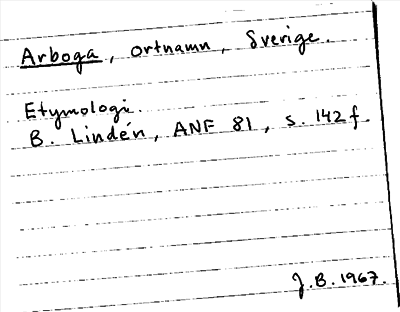 Arboga, ortnamn, Sverige.
Etymologi.
B. Lindén, ANF 81, s. 142 f.
J.B. 1967.